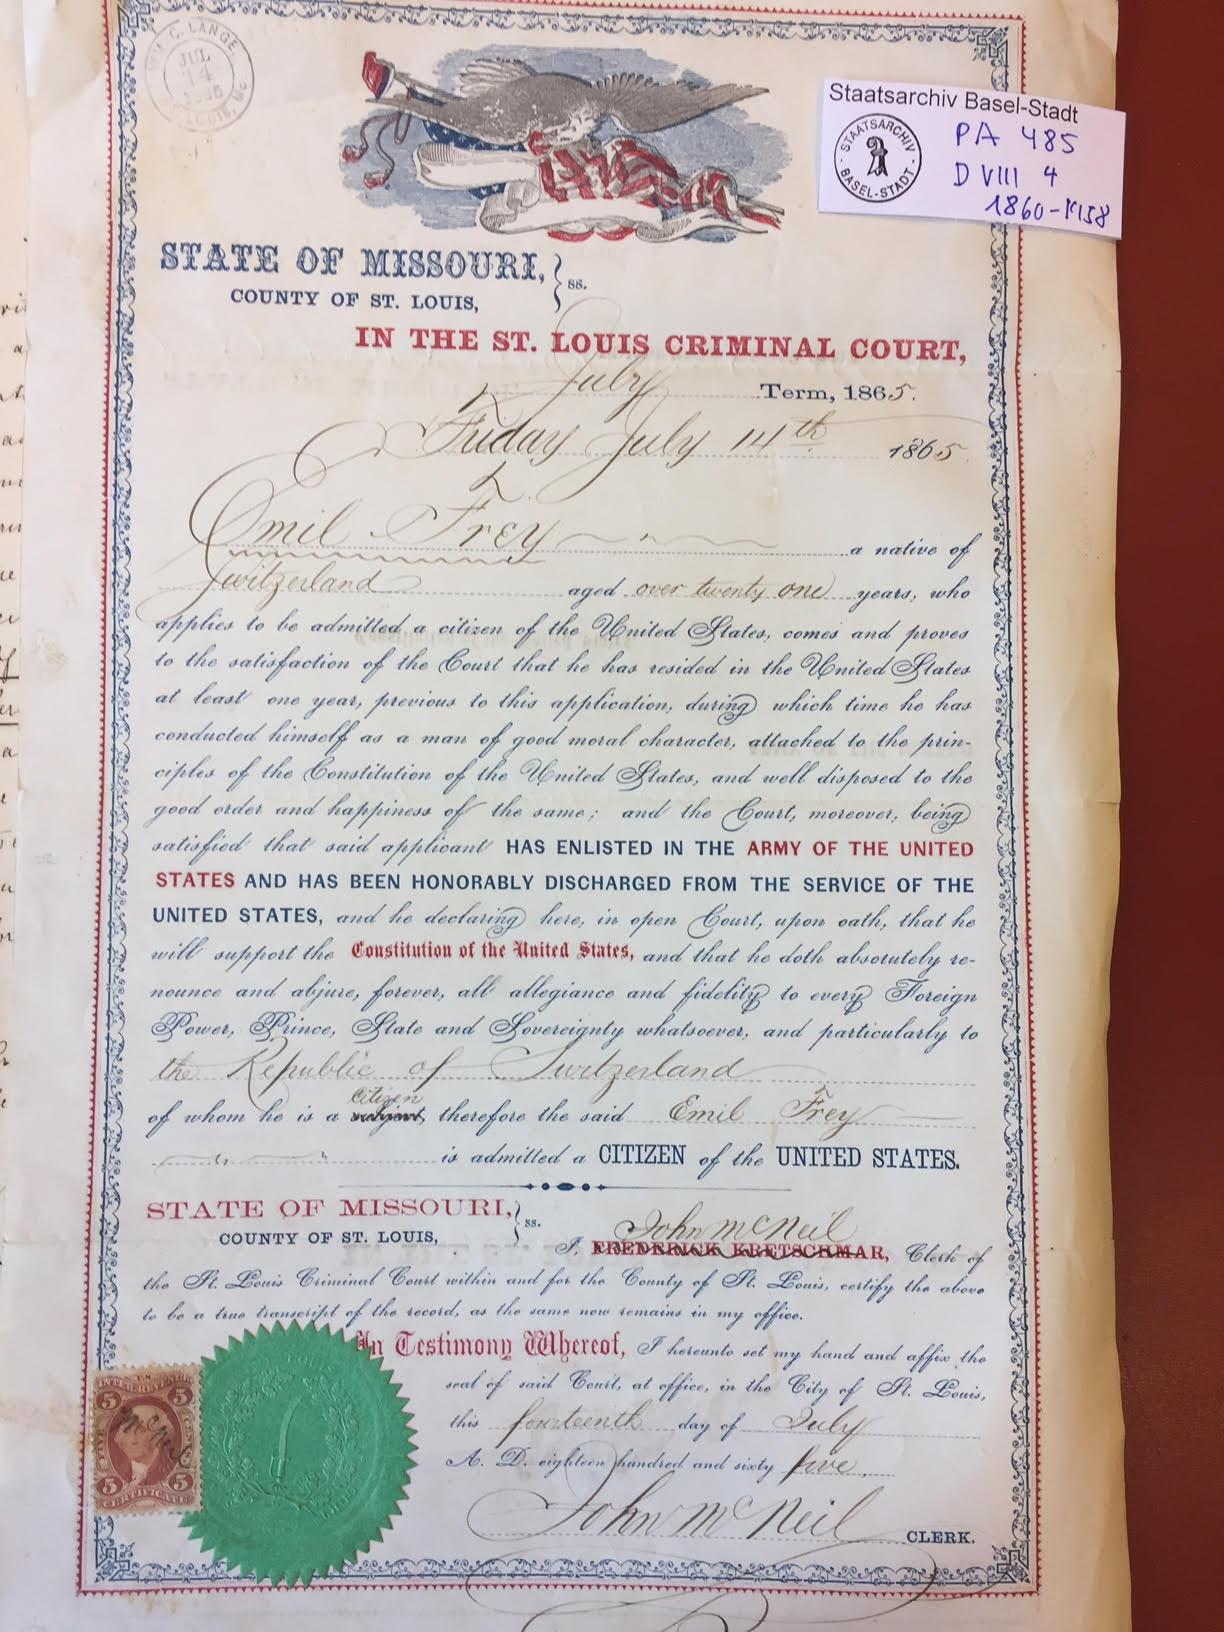 C. LANGE,
JUL
14
LOUIS, Mo
Staatsarchiv Basel-Stadt
STAATSARCHIV
BASEL-STADT
PA 485
D VIII 4
1860-1958
STATE OF MISSOURI, } ss.
COUNTY OF ST. LOUIS,
IN THE ST. LOUIS CRIMINAL COURT,
July Term, 1865.
Friday July 14th 1865
Emil Frey a native of
Switzerland aged over twenty one years, who
applies to be admitted a citizen of the United States, comes and proves
to the satisfaction of the Court that he has resided in the United States
at least one year, previous to this application, during which time he has
conducted himself as a man of good moral character, attached to the prin-
ciples of the Constitution of the United States, and well disposed to the
good order and happiness of the same; and the Court, moreover, being
satisfied that said applicant HAS ENLISTED IN THE ARMY OF THE UNITED
STATES AND HAS BEEN HONORABLY DISCHARGED FROM THE SERVICE OF THE
UNITED STATES, and he declaring here, in open Court, upon oath, that he
will support the Constitution of the United States, and that he doth absolutely re-
nounce and abjure, forever, all allegiance and fidelity to every Foreign
Power, Prince, State and Sovereignty whatsoever, and particularly to
the Republic of Switzerland
citizen
of whom he is a subject, therefore the said Emil Frey
is admitted a CITIZEN of the UNITED STATES.
STATE OF MISSOURI, } ss.
COUNTY OF ST. LOUIS,
John McNeil
I, FREDERICK KRETSCHMAR, Clerk of
the St. Louis Criminal Court within and for the County of St. Louis, certify the above
to be a true transcript of the record, as the same now remains in my office.
In Testimony Whereof, I hereunto set my hand and affix the
seal of said Court, at office, in the City of St. Louis,
this fourteenth day of July
A. D. eighteen hundred and sixty five.
John McNeil CLERK.
5 5
FIVE CENTS
5 5
CERTIFICATE